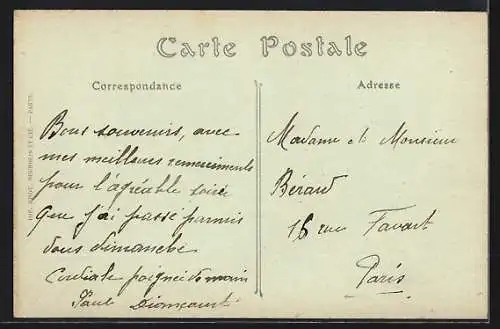 Carte Postale
Correspondance
Bons souvenirs, avec
mes meilleurs remerciements
pour l'agréable soirée
que j'ai passé parmis
vous dimanche
Cordiale poignée de main
Paul
Adresse
Madame et Monsieur
Bérard
rue Favart
Paris
PARIS